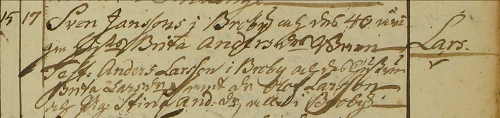 15 17 Sven Jansons i Broby och des 40 åri
gm hustro Brita Andersdr Barn Lars.
Test. Anders Larsson i Broby och des hustru
Brita Larsdr samt dr Olof Larsson
och Pig. Stina And.dr, alla i Broby.